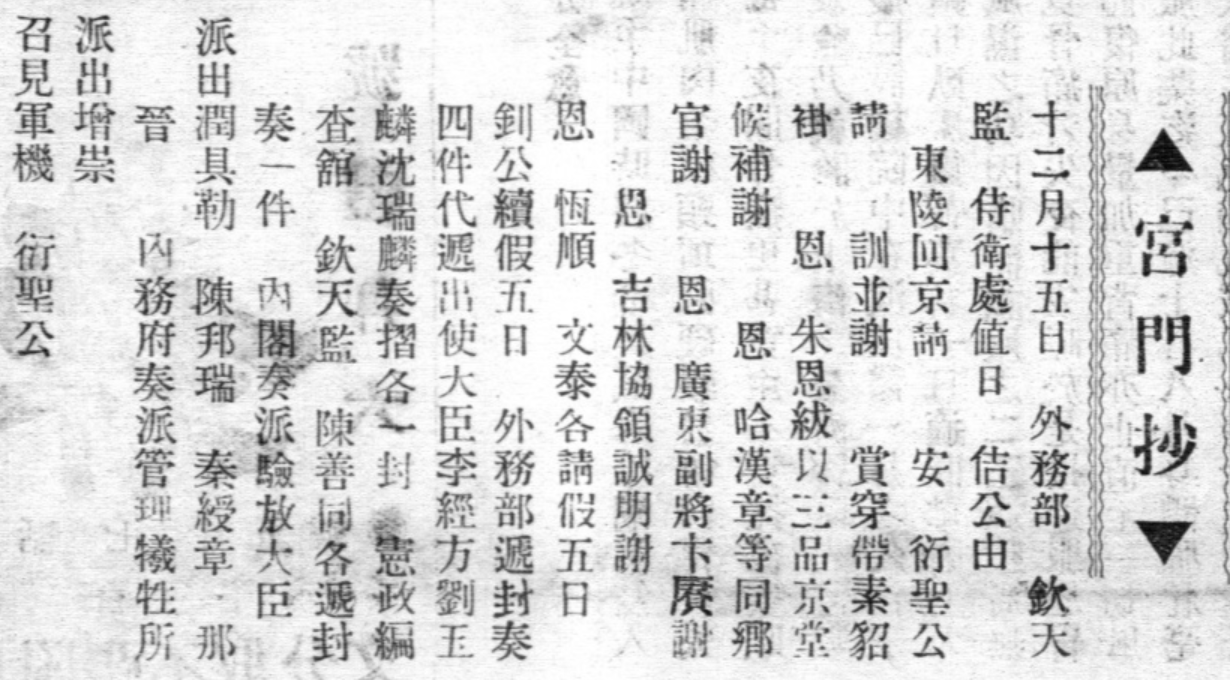 ▲宮門抄▼
十二月十五日 外務部 欽天
監 侍衛處值日 佶公由
東陵回京請 安 衍聖公
請 訓並謝 賞穿帶素貂
褂 恩 朱恩紱以三品京堂
候補謝 恩 哈漢章等同鄉
官謝 恩 廣東副將卞賡謝
恩 吉林協領誠明謝
恩 恆順 文泰各請假五日
釗公續假五日 外務部遞封奏
四件代遞出使大臣李經方劉玉
麟沈瑞麟奏摺各一封 憲政編
查舘 欽天監 陳善同各遞封
奏一件 內閣奏派驗放大臣
派出潤具勒 陳邦瑞 秦綬章 那
晉 內務府奏派管理犧牲所
派出增崇
召見軍機 衍聖公